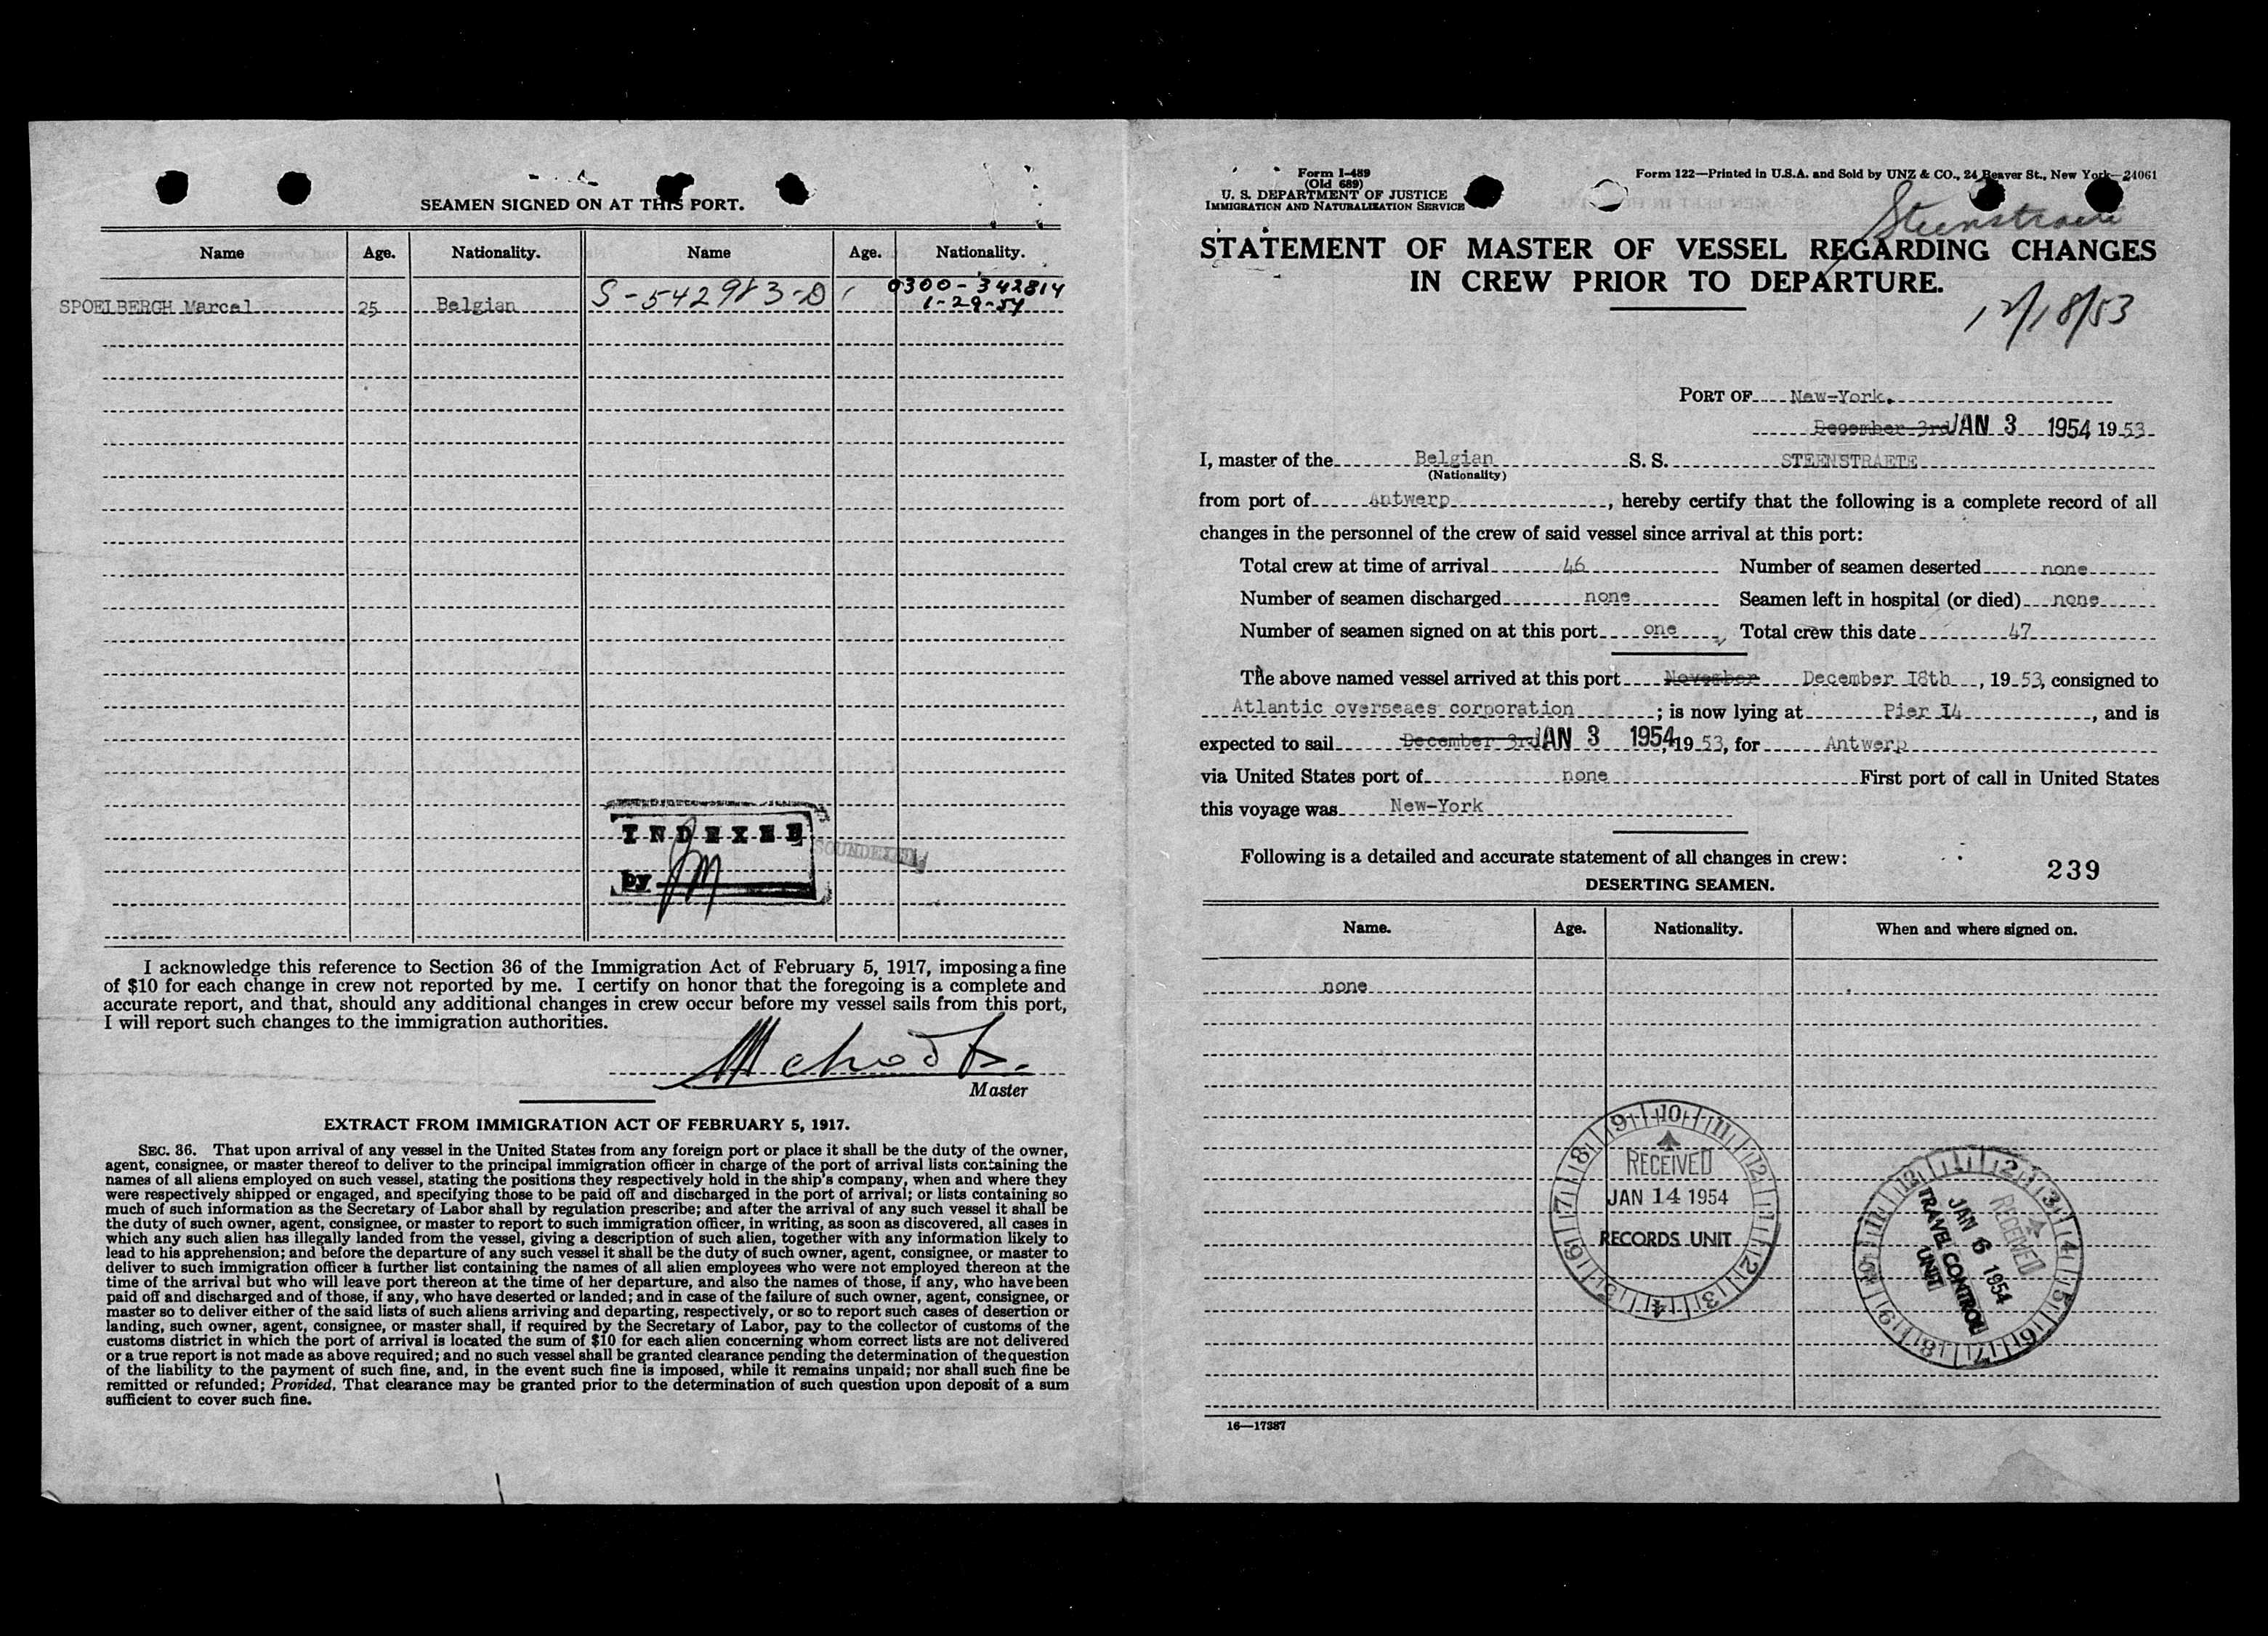 SEAMEN SIGNED ON AT THIS PORT.
Name Age. Nationality. Name Age. Nationality.
SPOELBERGH Marcel 25 Belgian S-542983-D 0300-342814
1-29-54
INDEXED
by
SOUNDEXED
I acknowledge this reference to Section 36 of the Immigration Act of February 5, 1917, imposing a fine
of $10 for each change in crew not reported by me. I certify on honor that the foregoing is a complete and
accurate report, and that, should any additional changes in crew occur before my vessel sails from this port,
I will report such changes to the immigration authorities.
Master
EXTRACT FROM IMMIGRATION ACT OF FEBRUARY 5, 1917.
SEC. 36. That upon arrival of any vessel in the United States from any foreign port or place it shall be the duty of the owner,
agent, consignee, or master thereof to deliver to the principal immigration officer in charge of the port of arrival lists containing the
names of all aliens employed on such vessel, stating the positions they respectively hold in the ship's company, when and where they
were respectively shipped or engaged, and specifying those to be paid off and discharged in the port of arrival; or lists containing so
much of such information as the Secretary of Labor shall by regulation prescribe; and after the arrival of any such vessel it shall be
the duty of such owner, agent, consignee, or master to report to such immigration officer, in writing, as soon as discovered, all cases in
which any such alien has illegally landed from the vessel, giving a description of such alien, together with any information likely to
lead to his apprehension; and before the departure of any such vessel it shall be the duty of such owner, agent, consignee, or master to
deliver to such immigration officer a further list containing the names of all alien employees who were not employed thereon at the
time of the arrival but who will leave port thereon at the time of her departure, and also the names of those, if any, who have been
paid off and discharged and of those, if any, who have deserted or landed; and in case of the failure of such owner, agent, consignee, or
master so to deliver either of the said lists of such aliens arriving and departing, respectively, or so to report such cases of desertion or
landing, such owner, agent, consignee, or master shall, if required by the Secretary of Labor, pay to the collector of customs of the
customs district in which the port of arrival is located the sum of $10 for each alien concerning whom correct lists are not delivered
or a true report is not made as above required; and no such vessel shall be granted clearance pending the determination of the question
of the liability to the payment of such fine, and, in the event such fine is imposed, while it remains unpaid; nor shall such fine be
remitted or refunded; Provided, That clearance may be granted prior to the determination of such question upon deposit of a sum
sufficient to cover such fine.
Form I-489
(Old 689)
U. S. DEPARTMENT OF JUSTICE
IMMIGRATION AND NATURALIZATION SERVICE
Form 122—Printed in U.S.A. and Sold by UNZ & CO., 24 Beaver St., New York—24061
Steenstraete
STATEMENT OF MASTER OF VESSEL REGARDING CHANGES
IN CREW PRIOR TO DEPARTURE.
12/18/53
PORT OF New-York.
December 3rd JAN 3 1954 19 53
I, master of the Belgian S. S. STEENSTRAETE
(Nationality)
from port of Antwerp, hereby certify that the following is a complete record of all
changes in the personnel of the crew of said vessel since arrival at this port:
Total crew at time of arrival 46 Number of seamen deserted none
Number of seamen discharged none Seamen left in hospital (or died) none
Number of seamen signed on at this port one, Total crew this date 47
The above named vessel arrived at this port November December 18th, 19 53, consigned to
Atlantic overseaes corporation; is now lying at Pier 14, and is
expected to sail December 3rd JAN 3 1954, 19 53, for Antwerp
via United States port of none First port of call in United States
this voyage was New-York
Following is a detailed and accurate statement of all changes in crew:
239
DESERTING SEAMEN.
Name. Age. Nationality. When and where signed on.
none
9 10 11 12 1 2 3 4 5 6 7 8
RECEIVED
JAN 14 1954
RECORDS UNIT
12 1 2 3 4 5 6 7 8 9 10 11
RECEIVED
JAN 6 1954
TRAVEL CONTROL
UNIT
16—17387